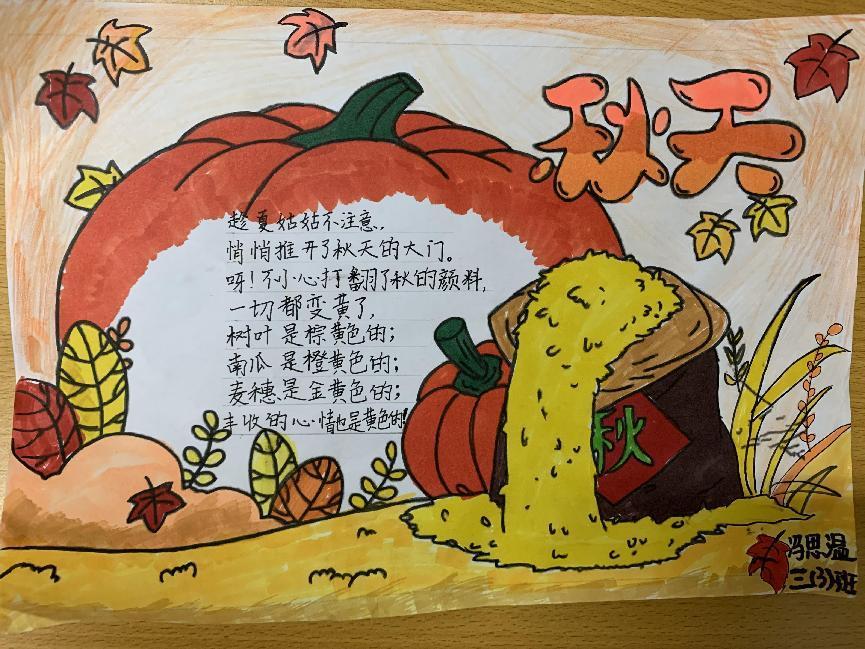 秋天
趁夏姑姑不注意，
悄悄推开了秋天的大门。
呀！不小心打翻了秋的颜料，
一切都变黄了，
树叶是棕黄色的；
南瓜是橙黄色的；
麦穗是金黄色的；
丰收的心情也是黄色的！
秋
冯思温
三(3)班